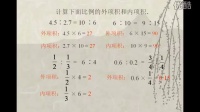 计算下面比例的外项积和内项积。
4.5∶2.7＝10∶6　6∶10＝9∶15
外项积：4.5×6＝27　外项积：6×15＝90
内项积：2.7×10＝27　内项积：10×9＝90
1/2∶1/3＝6∶4　0.6∶0.2＝3/4∶1/4
外项积：1/2×4＝2　外项积：0.6×1/4
内项积：1/3×6＝2　内项积：